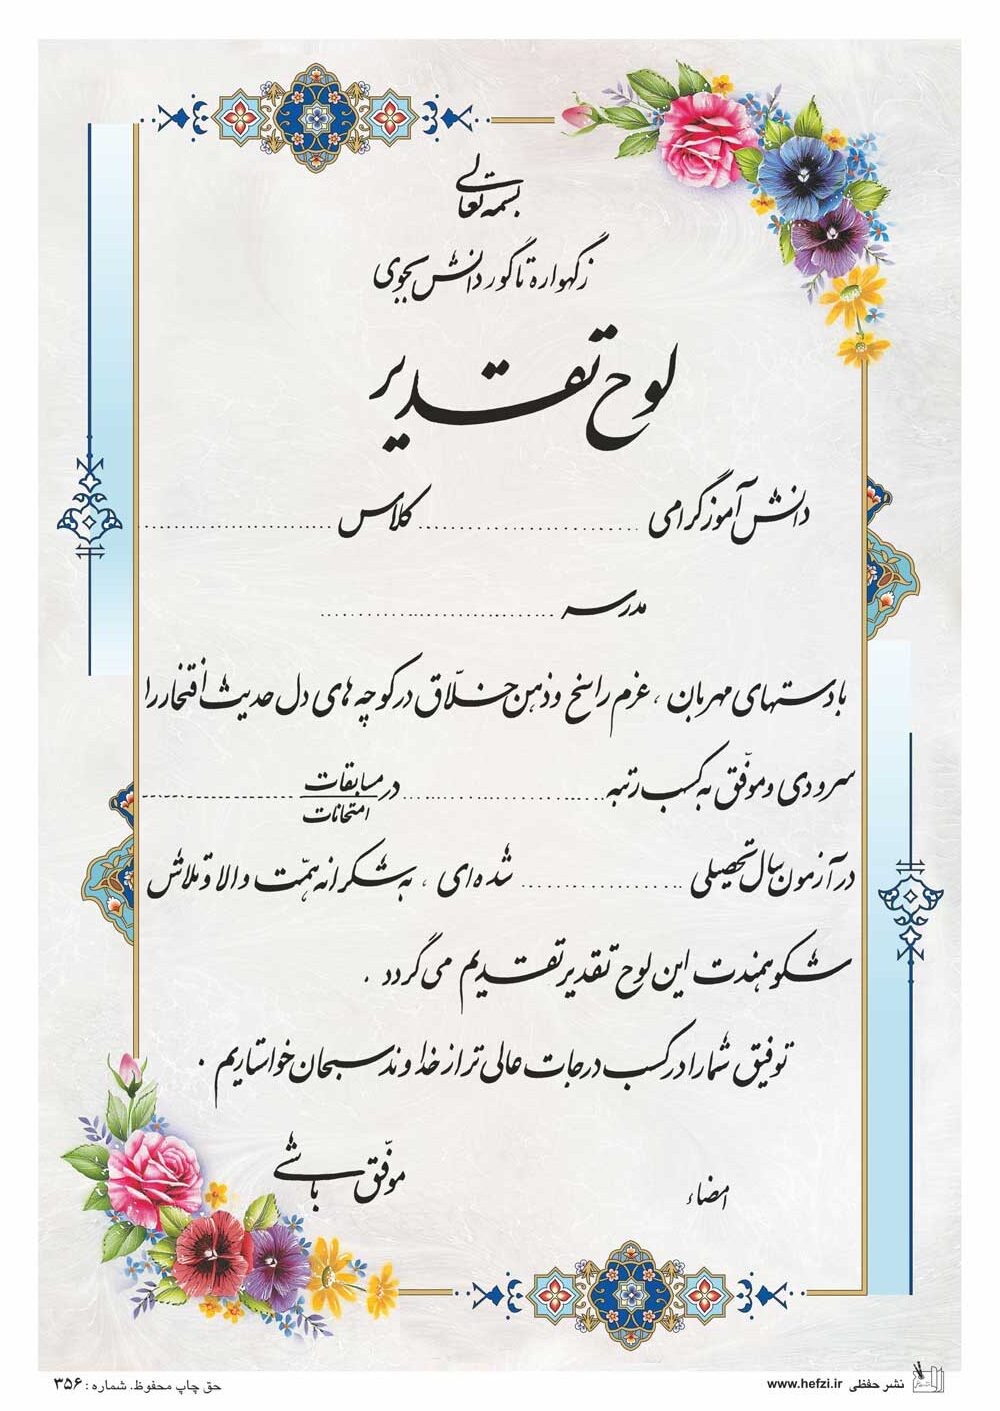 بسمه تعالی
ز گهواره تا گور دانش بجوی
لوح تقدیر
دانش آموز گرامی ........................ کلاس ........................
مدرسه ........................
با دستهای مهربان ، عزم راسخ و ذهن خلّاق در کوچه های دل حدیث افتخار را
سرودی و موفّق به کسب رتبه ........................ در مسابقات ........................
امتحانات
در آزمون سال تحصیلی ................ شده ای ، به شکرانه همّت والا و تلاش
شکوهمندت این لوح تقدیر تقدیم می گردد .
توفیق شما را در کسب درجات عالی تر از خداوند سبحان خواستاریم .
موفّق باشی
امضاء
نشر حفظی www.hefzi.ir
حق چاپ محفوظ. شماره : ۳۵۶